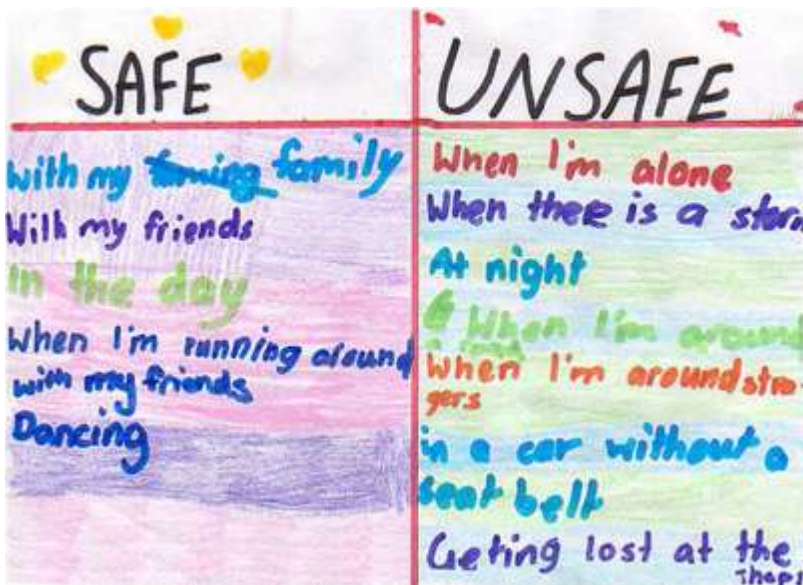 SAFE
with my family
With my friends
In the day
When I'm running around
with my friends
Dancing
UNSAFE
When I'm alone
When there is a storm
At night
When I'm around
When I'm around stra
gers
in a car without a
seat belt
Geting lost at the
shops